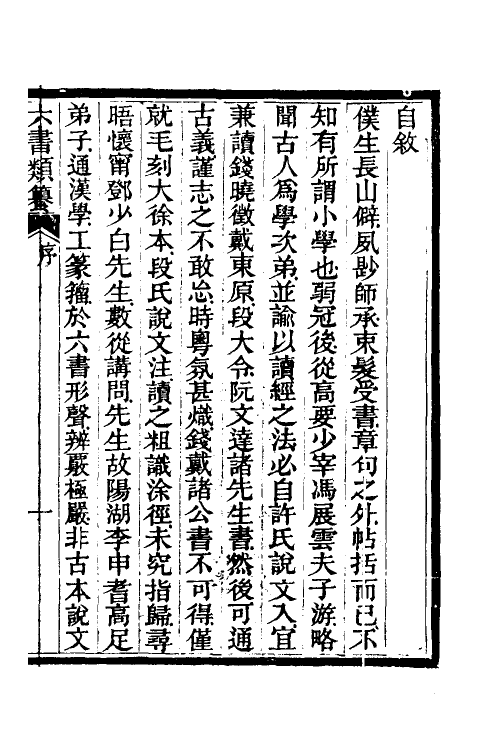 自敘
僕生長山僻夙尟師承束髮受書章句之外帖括而已不
知有所謂小學也弱冠後從高要少宰馮展雲夫子游略
聞古人為學次弟並諭以讀經之法必自許氏說文入宜
兼讀錢曉徵戴東原段大令阮文達諸先生書然後可通
古義謹志之不敢忩時粵氛甚熾錢戴諸公書不可得僅
就毛刻大徐本段氏說文注讀之粗識涂徑未究指歸尋
晤懷甯鄧少白先生數從講問先生故陽湖李申耆高足
弟子通漢學工篆籀於六書形聲辨嚴極嚴非古本說文
六書類纂
序
一